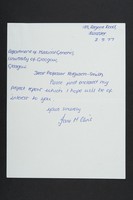 2. 9. 77
Department of Medical Genetics,
University of Glasgow,
Glasgow
Dear Professor Ferguson-Smith,
Please find enclosed my
report which I hope will be of
interest to you.
Yours sincerely